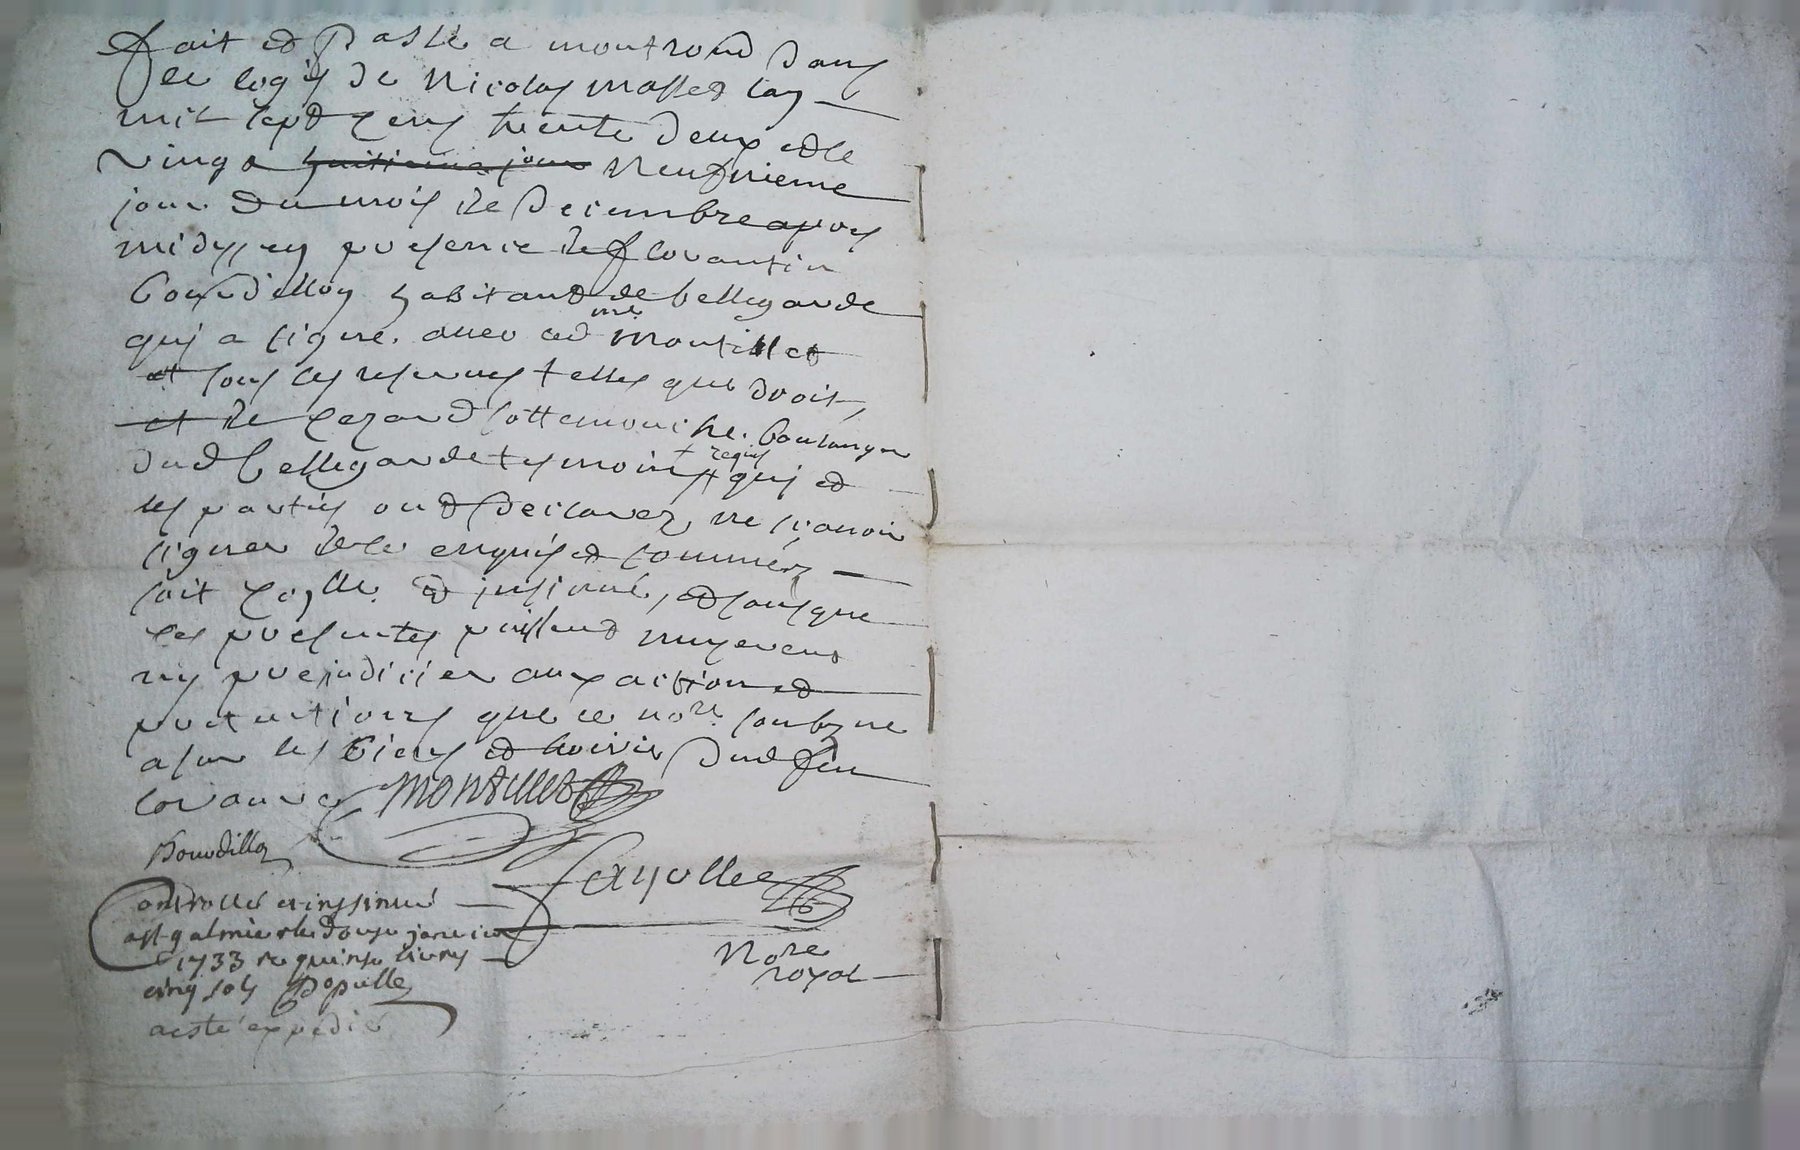 fait et passé a montrond dans
le logis de Nicolas masset lan
mil sept cens trente deux et le
vingt huitieme jour neufvieme
jour du mois de decembre apres
midy, en presence de florantin
bourdillon habitant de bellegarde
qui a signé avec led me montillet
et sous les reserves telles que droit,
et de boulanger
dud bellegarde tesmoins + requis qui et
les parties ont declarez ne scavoir
signer de ce enquis et sommez
soit et insinué, et sans que
les presentes puissent
ny prejudicier aux action et
pretentions que le nore soubzne
a sur les biens et hoirie dud feu
montillet
Bourdillon
fayolle
Controllé et inssinué
a st galmier le douze janvier
1733 r quinze livres
cinq sols
nore
royal
a esté expedié